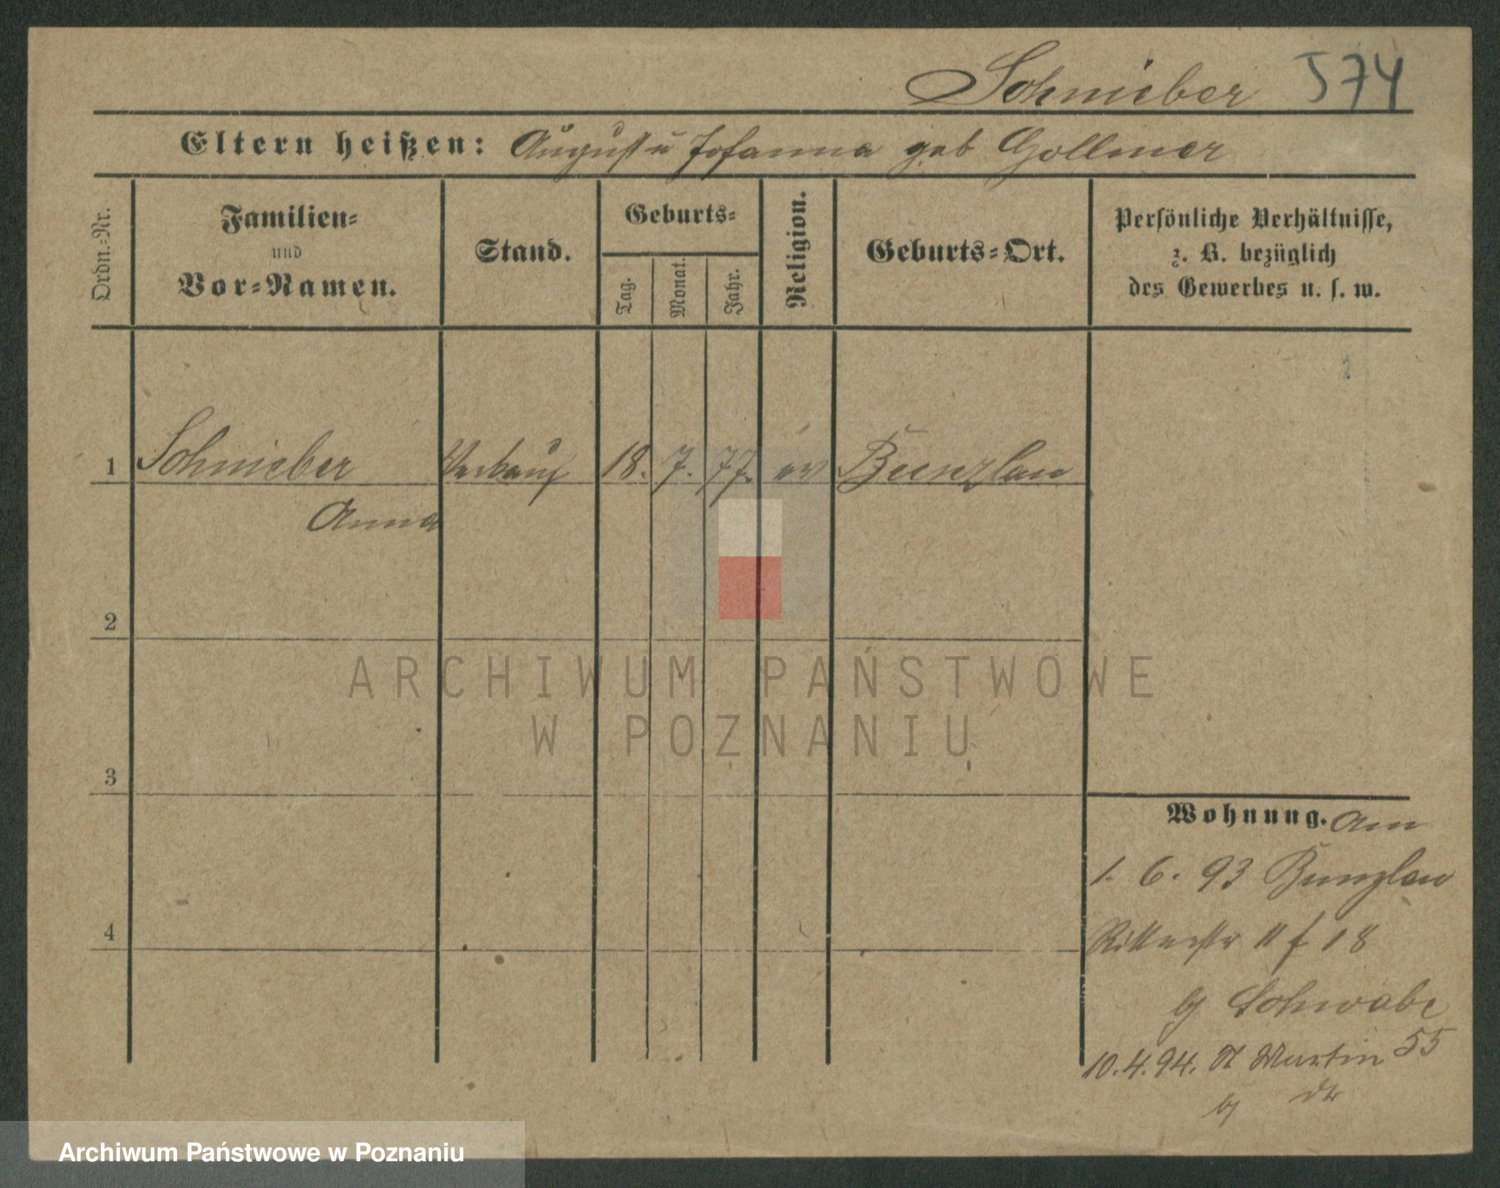 Schnieber 574
Eltern heißen: August u Johanna geb Gollmer
Ordn.-Nr.
Familien-
und
Vor-Namen.
Stand.
Geburts-
Tag.
Monat.
Jahr.
Religion.
Geburts-Ort.
Persönliche Verhältnisse,
z. B. bezüglich
des Gewerbes u. s. w.
1 Schnieber Verkauf 18. 7. 77. ev Bunzlau
Anna
2
3
4
Wohnung. Am
1. 6. 93 Bunzlau
Ritterstr 11 f 18
bj Schwabe
10.4.94. St Martin 55
bj
ARCHIWUM PAŃSTWOWE
W POZNANIU
Archiwum Państwowe w Poznaniu